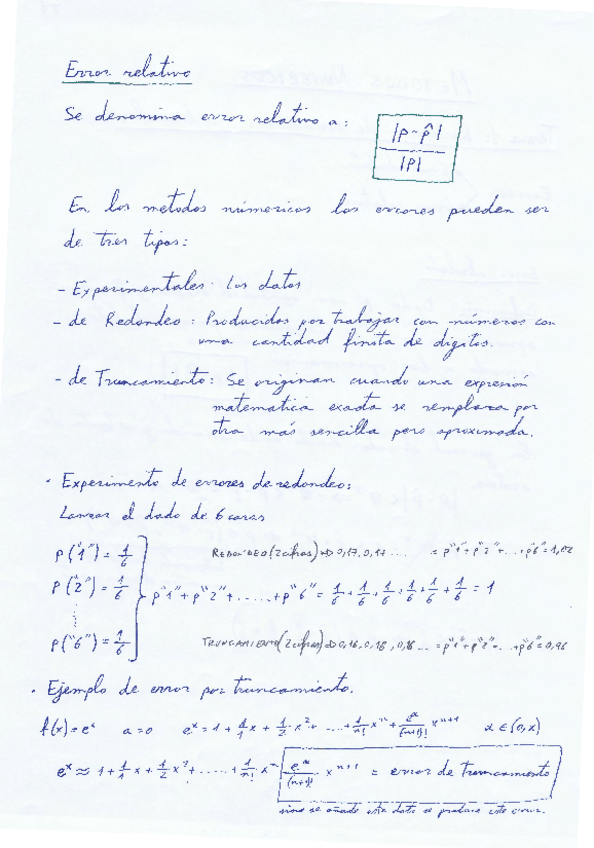 Error relativo
Se denomina error relativo a: |p - p̂| / |p|
En los metodos númericos los errores pueden ser
de tres tipos:
- Experimentales: Los datos
- de Redondeo: Producidos por trabajar con números con
una cantidad finita de digitos.
- de Truncamiento: Se originan cuando una expresión
matematica exacta se remplaza por
otra más sencilla pero aproximada.
· Experimento de errores de redondeo:
Lanzar el dado de 6 caras
p("1") = 1/6 REDONDEO (2 cifras) ⇒ 0,17, 0,17 .... = p"1" + p"2" + ... + p"6" = 1,02
p("2") = 1/6 } p"1" + p"2" + ..... + p"6" = 1/6 + 1/6 + 1/6 + 1/6 + 1/6 + 1/6 = 1
⋮
p("6") = 1/6 TRUNCAMIENTO (2 cifras) ⇒ 0,16, 0,16, 0,16 ... = p"1" + p"2" + .. + p"6" = 0,96
· Ejemplo de error por truncamiento.
f(x) = eˣ a = 0 eˣ = 1 + 1/1 x + 1/2 x² + ... + 1/n! xⁿ + e^α/(n+1)! xⁿ⁺¹ α ∈ (0,x)
eˣ ≈ 1 + 1/1 x + 1/2 x² + ..... + 1/n! xⁿ e^α/(n+1)! xⁿ⁺¹ = error de truncamiento
sino se añade este dato se produce este error.